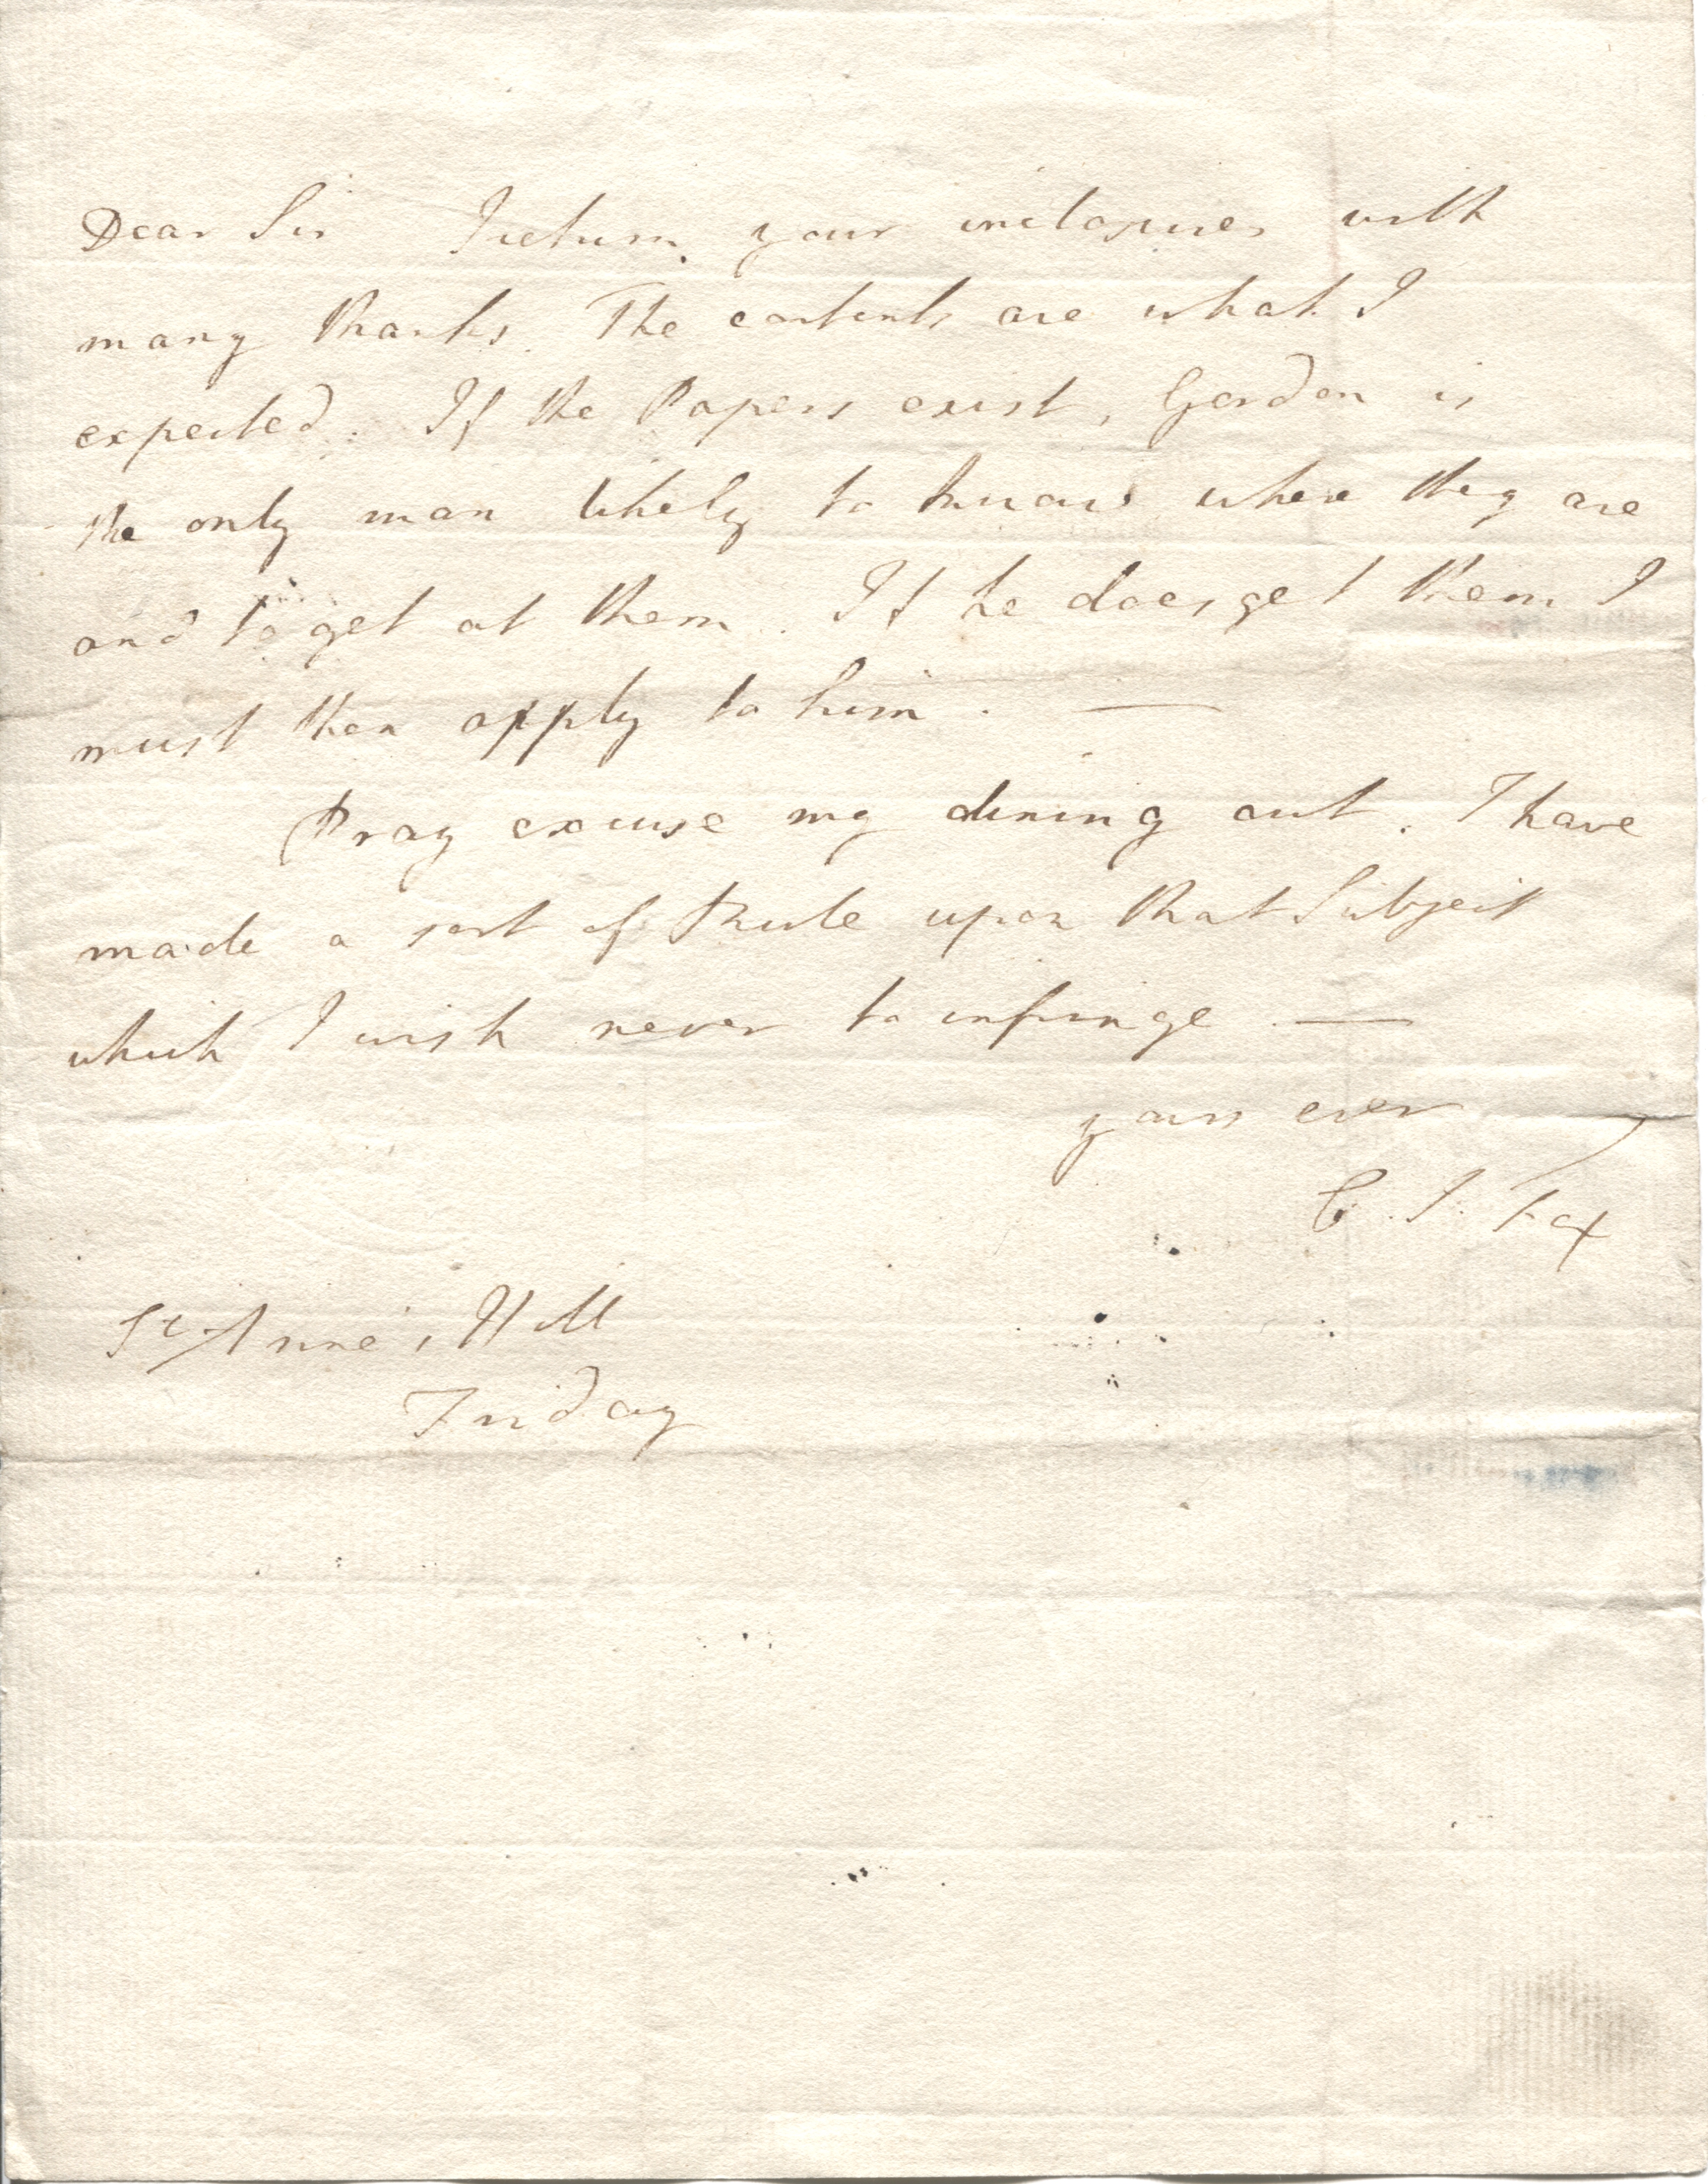 Dear Sir I return your inclosures with
many thanks. The contents are what I
expected. If the Papers exist, Gordon is
the only man likely to know where they are
and to get at them. If he does get them I
must then apply to him. —
Pray excuse my dining out. I have
made a sort of Rule upon that Subject
which I wish never to infringe —
yours ever
C. J. Fox
St Anne's Hill
Friday